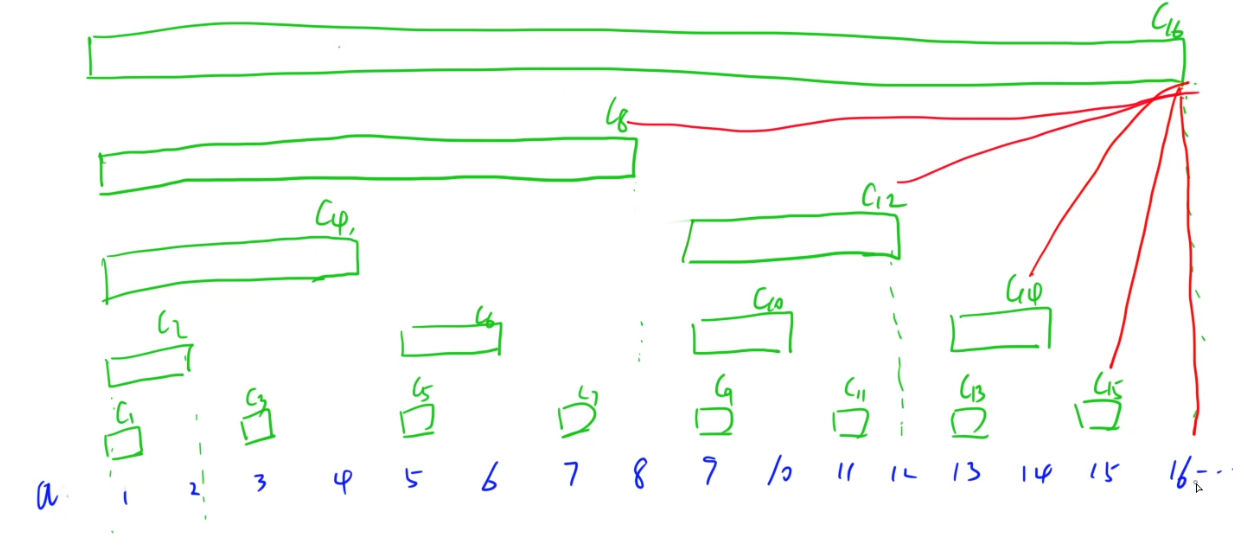 C16
C8
C12
C4
C14
C2 C6 C10
C1 C3 C5 C7 C9 C11 C13 C15
a 1 2 3 4 5 6 7 8 9 10 11 12 13 14 15 16 ...